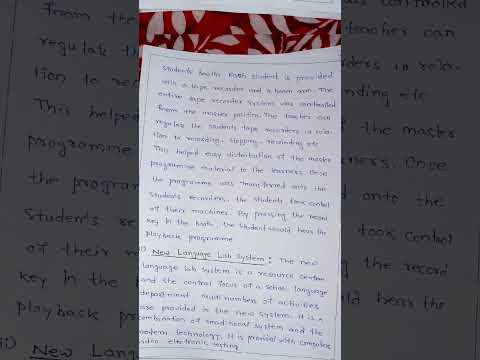 Students booths Each student is provided
with a tape recorder and a boom arm. The
entire tape recorder system was controlled
from the master position. The teacher can
regulate the students tape recorders in rela-
tion to recording, stopping, rewinding etc
This helped easy distribution of the master
programme material to the learners. Once
the programme was transferred onto the
Students recorders, the students took control
of their machines. By pressing the record
key in the booth, the student could hear the
playback programme
ii) New Language Lab System : The new
language lab system is a resource centre
and the central focus of a school language
department multi number of activities
are provided in the new system. It is a
combination of traditional system and the
modern technology. It is provided with computers
video electronic setting